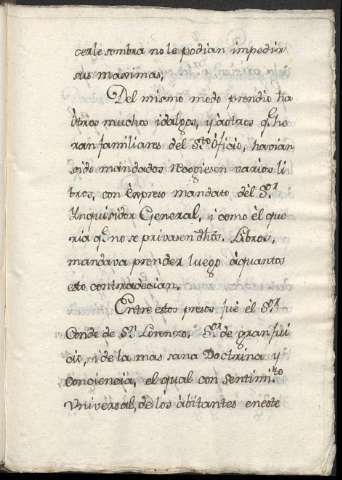 cerle sombra no le podian impedir
sus maximas,
Del mismo modo prendio ha
ôtros muchos idalgos, i haôtros q.e ho
ran familiares del S.to ôficio, havian
sido mandados Recogiesen varios li
bros, con Expreso mandato del S.r
Ynquisidor General, i como êl que
ria q.e no se privasen d.hos. Libros,
mandava prender luego âquantos
esto contradecian.
Entre estos presos fuè èl S.r
Conde de S.n Lorenzo, S.r de gran jui
cio, i de la mas sana Doctrina y
Conciencia, el qual con sentim.to
Vniversal, de los âbitantes en este